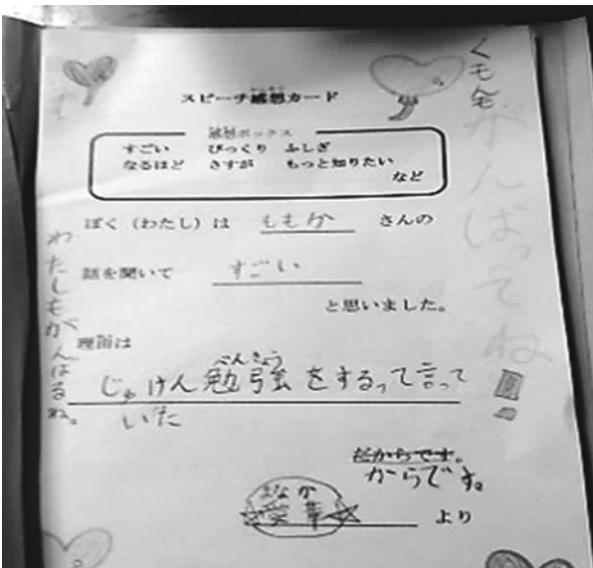 スピーチ感想カード
かんそう
感想ボックス
すごい びっくり ふしぎ
なるほど さすが もっと知りたい
など
ぼく(わたし)は ももか さんの
話を聞いて すごい
と思いました。
理由は
べんきょう
じゅけん勉強をするって言って
いた
だからです。
からです。
まなか
☆愛華☆ より
わたしもがんばるね。
がんばってね